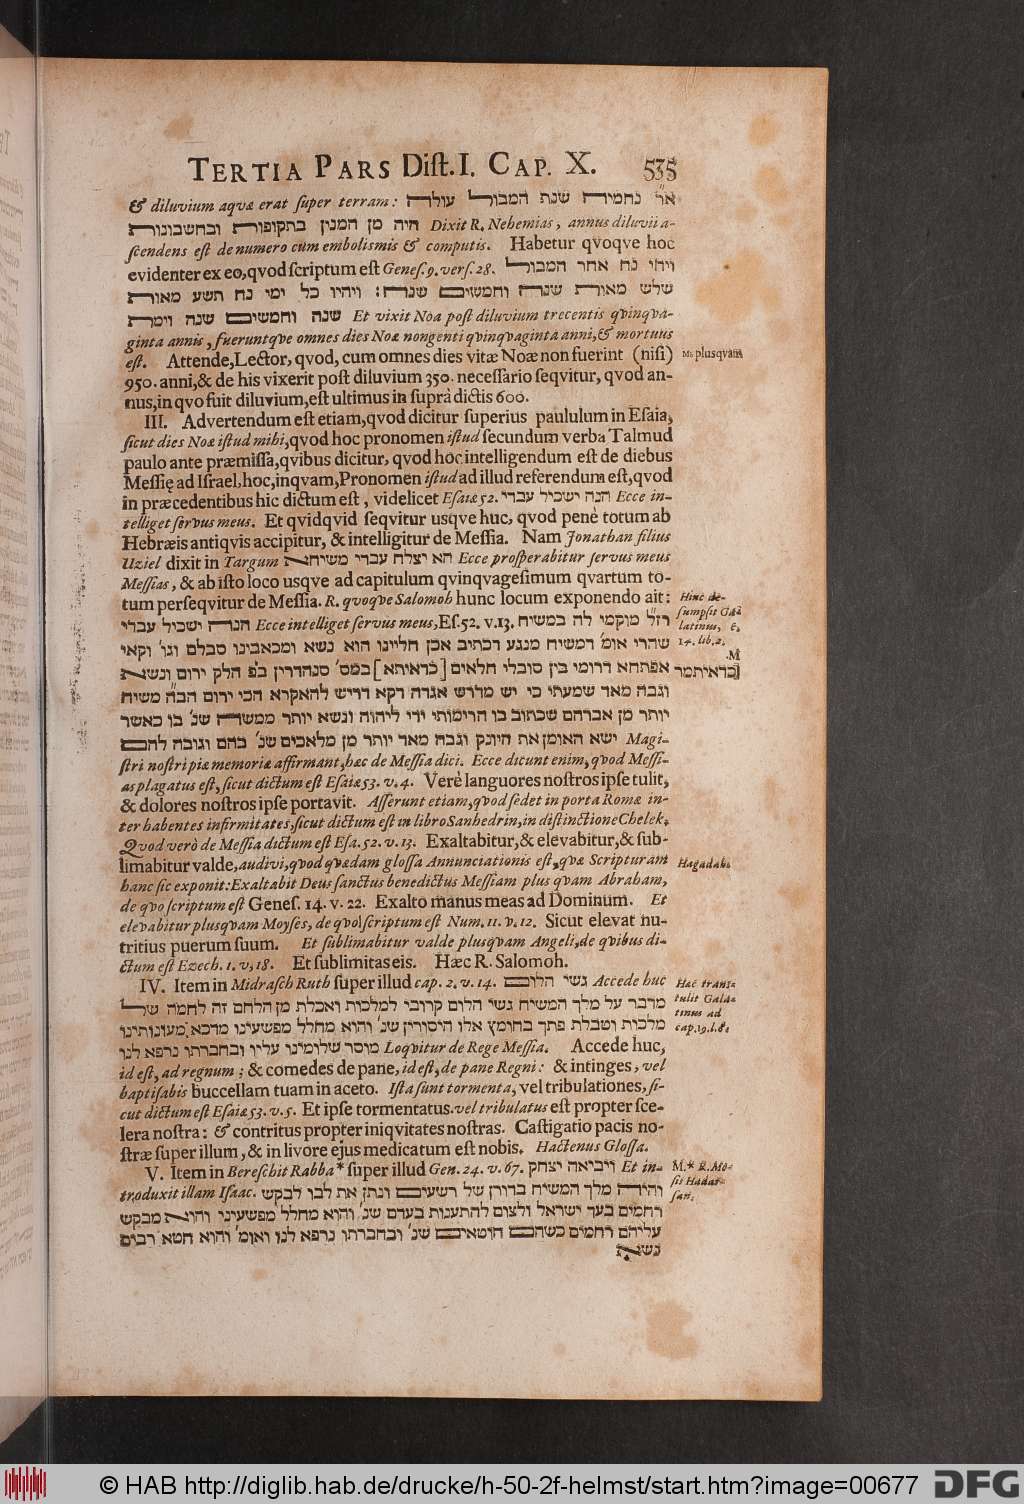 TERTIA PARS Dist. I. CAP. X. 535
& diluvium aquæ erat super terram: אר״ נחמיה שנת המבול עולה
היה מן המנין בתקופות ובחשבונות Dixit R. Nehemias, annus diluvii a-
scendens est de numero cum embolismis & computis. Habetur qvoqve hoc
evidenter ex eo, qvod scriptum est Genes. 9. vers. 28. ויחי נח אחר המבול
שלש מאות שנה וחמשים שנה: ויהיו כל ימי נח תשע מאות
שנה וחמשים שנה וימת Et vixit Noa post diluvium trecentis qvinqva-
ginta annis, fueruntqve omnes dies Noæ nongenti qvinqvaginta anni, & mortuus
est. Attende, Lector, qvod, cum omnes dies vitæ Noæ non fuerint (nisi) M. plusqvam
950. anni, & de his vixerit post diluvium 350. necessario seqvitur, qvod an-
nus, in qvo fuit diluvium, est ultimus in suprà dictis 600.
III. Advertendum est etiam, qvod dicitur superius paululum in Esaia,
sicut dies Noæ istud mihi, qvod hoc pronomen istud secundum verba Talmud
paulo ante præmissa, qvibus dicitur, qvod hoc intelligendum est de diebus
Messię ad Israel, hoc, inqvam, Pronomen istud ad illud referendum est, qvod
in præcedentibus hic dictum est, videlicet Esaiæ 52. הנה ישכיל עבדי Ecce in-
telliget servus meus. Et qvidqvid seqvitur usqve huc, qvod penè totum ab
Hebræis antiqvis accipitur, & intelligitur de Messia. Nam Jonathan filius
Uziel dixit in Targum הא יצלח עבדי משיחא Ecce prosperabitur servus meus
Messias, & ab isto loco usqve ad capitulum qvinqvagesimum qvartum to-
tum perseqvitur de Messia. R. qvoqve Salomoh hunc locum exponendo ait: Hinc de-
sumpsit Ga-
latinus,
14. lib. 2.
רז״ל מוקמי לה במשיח הנה ישכיל עבדי Ecce intelliget servus meus, Es. 52. v. 13.
שהרי אומ׳ דמשיח מנגע דכתיב אכן חליינו הוא נשא ומכאבינו סבלם וגו׳ וקאי
אפתחא דרומי בין סובלי חלאים [כדאיתא] במס׳ סנהדרין בפ׳ חלק ירום ונשא M
כדאיתמר]
וגבה מאד שמעתי כי יש מדרש אגדה דקא דריש להאקרא הכי ירום הב״ה משיח
יותר מן אברהם שכתוב בו הרימותי ידי ליהוה ונשא יותר ממשה שנ׳ בו כאשר
ישא האומן את היונק וגבה מאד יותר מן מלאכים שנ׳ בהם וגובה להם Magi-
stri nostri piæ memoriæ affirmant, hæc de Messia dici. Ecce dicunt enim, qvod Messi-
as plagatus est, sicut dictum est Esaiæ 53. v. 4. Verè languores nostros ipse tulit,
& dolores nostros ipse portavit. Asserunt etiam, qvod sedet in porta Romæ in-
ter habentes infirmitates, sicut dictum est in libro Sanhedrin, in distinctione Chelek.
Qvod verò de Messia dictum est Esa. 52. v. 13. Exaltabitur, & elevabitur, & sub-
limabitur valde, audivi, qvod qvædam glossa Annunciationis est, qvæ Scripturam Hagadah.
hanc sic exponit: Exaltabit Deus sanctus benedictus Messiam plus qvam Abraham,
de qvo scriptum est Genes. 14. v. 22. Exalto manus meas ad Dominum. Et
elevabitur plusqvam Moyses, de qvo scriptum est Num. 11. v. 12. Sicut elevat nu-
tritius puerum suum. Et sublimabitur valde plusqvam Angeli, de qvibus di-
ctum est Ezech. 1. v. 18. Et sublimitas eis. Hæc R. Salomoh.
IV. Item in Midrasch Ruth super illud cap. 2. v. 14. גשי הלום Accede huc Hæc trans-
tulit Gala-
tinus ad
cap. 19. l. 8.
מדבר על מלך המשיח גשי הלום קרובי למלכות ואכלת מן הלחם זה לחמה של
מלכות וטבלת פתך בחומץ אלו היסורין שנ׳ והוא מחלל מפשעינו מדכא מעונותינו
מוסר שלומינו עליו ובחברתו נרפא לנו Loqvitur de Rege Messia. Accede huc,
id est, ad regnum; & comedes de pane, id est, de pane Regni: & intinges, vel
baptisabis buccellam tuam in aceto. Ista sunt tormenta, vel tribulationes, si-
cut dictum est Esaiæ 53. v. 5. Et ipse tormentatus vel tribulatus est propter sce-
lera nostra: & contritus propter iniqvitates nostras. Castigatio pacis no-
stræ super illum, & in livore ejus medicatum est nobis. Hactenus Glossa.
V. Item in Bereschit Rabba* super illud Gen. 24. v. 67. ויביאה יצחק Et in- M.* R. Mo-
sis Hadar-
san.
troduxit illam Isaac. והיה מלך המשיח בדורן של רשעים ונתן את לבו לבקש
רחמים בעד ישראל ולצום להתענות בעדם שנ׳ והוא מחלל מפשעינו והוא מבקש
עליהם רחמים כשהם חוטאים שנ׳ ובחברתו נרפא לנו ואומ׳ והוא חטא רבים
נשא
© HAB http://diglib.hab.de/drucke/h-50-2f-helmst/start.htm?image=00677 DFG